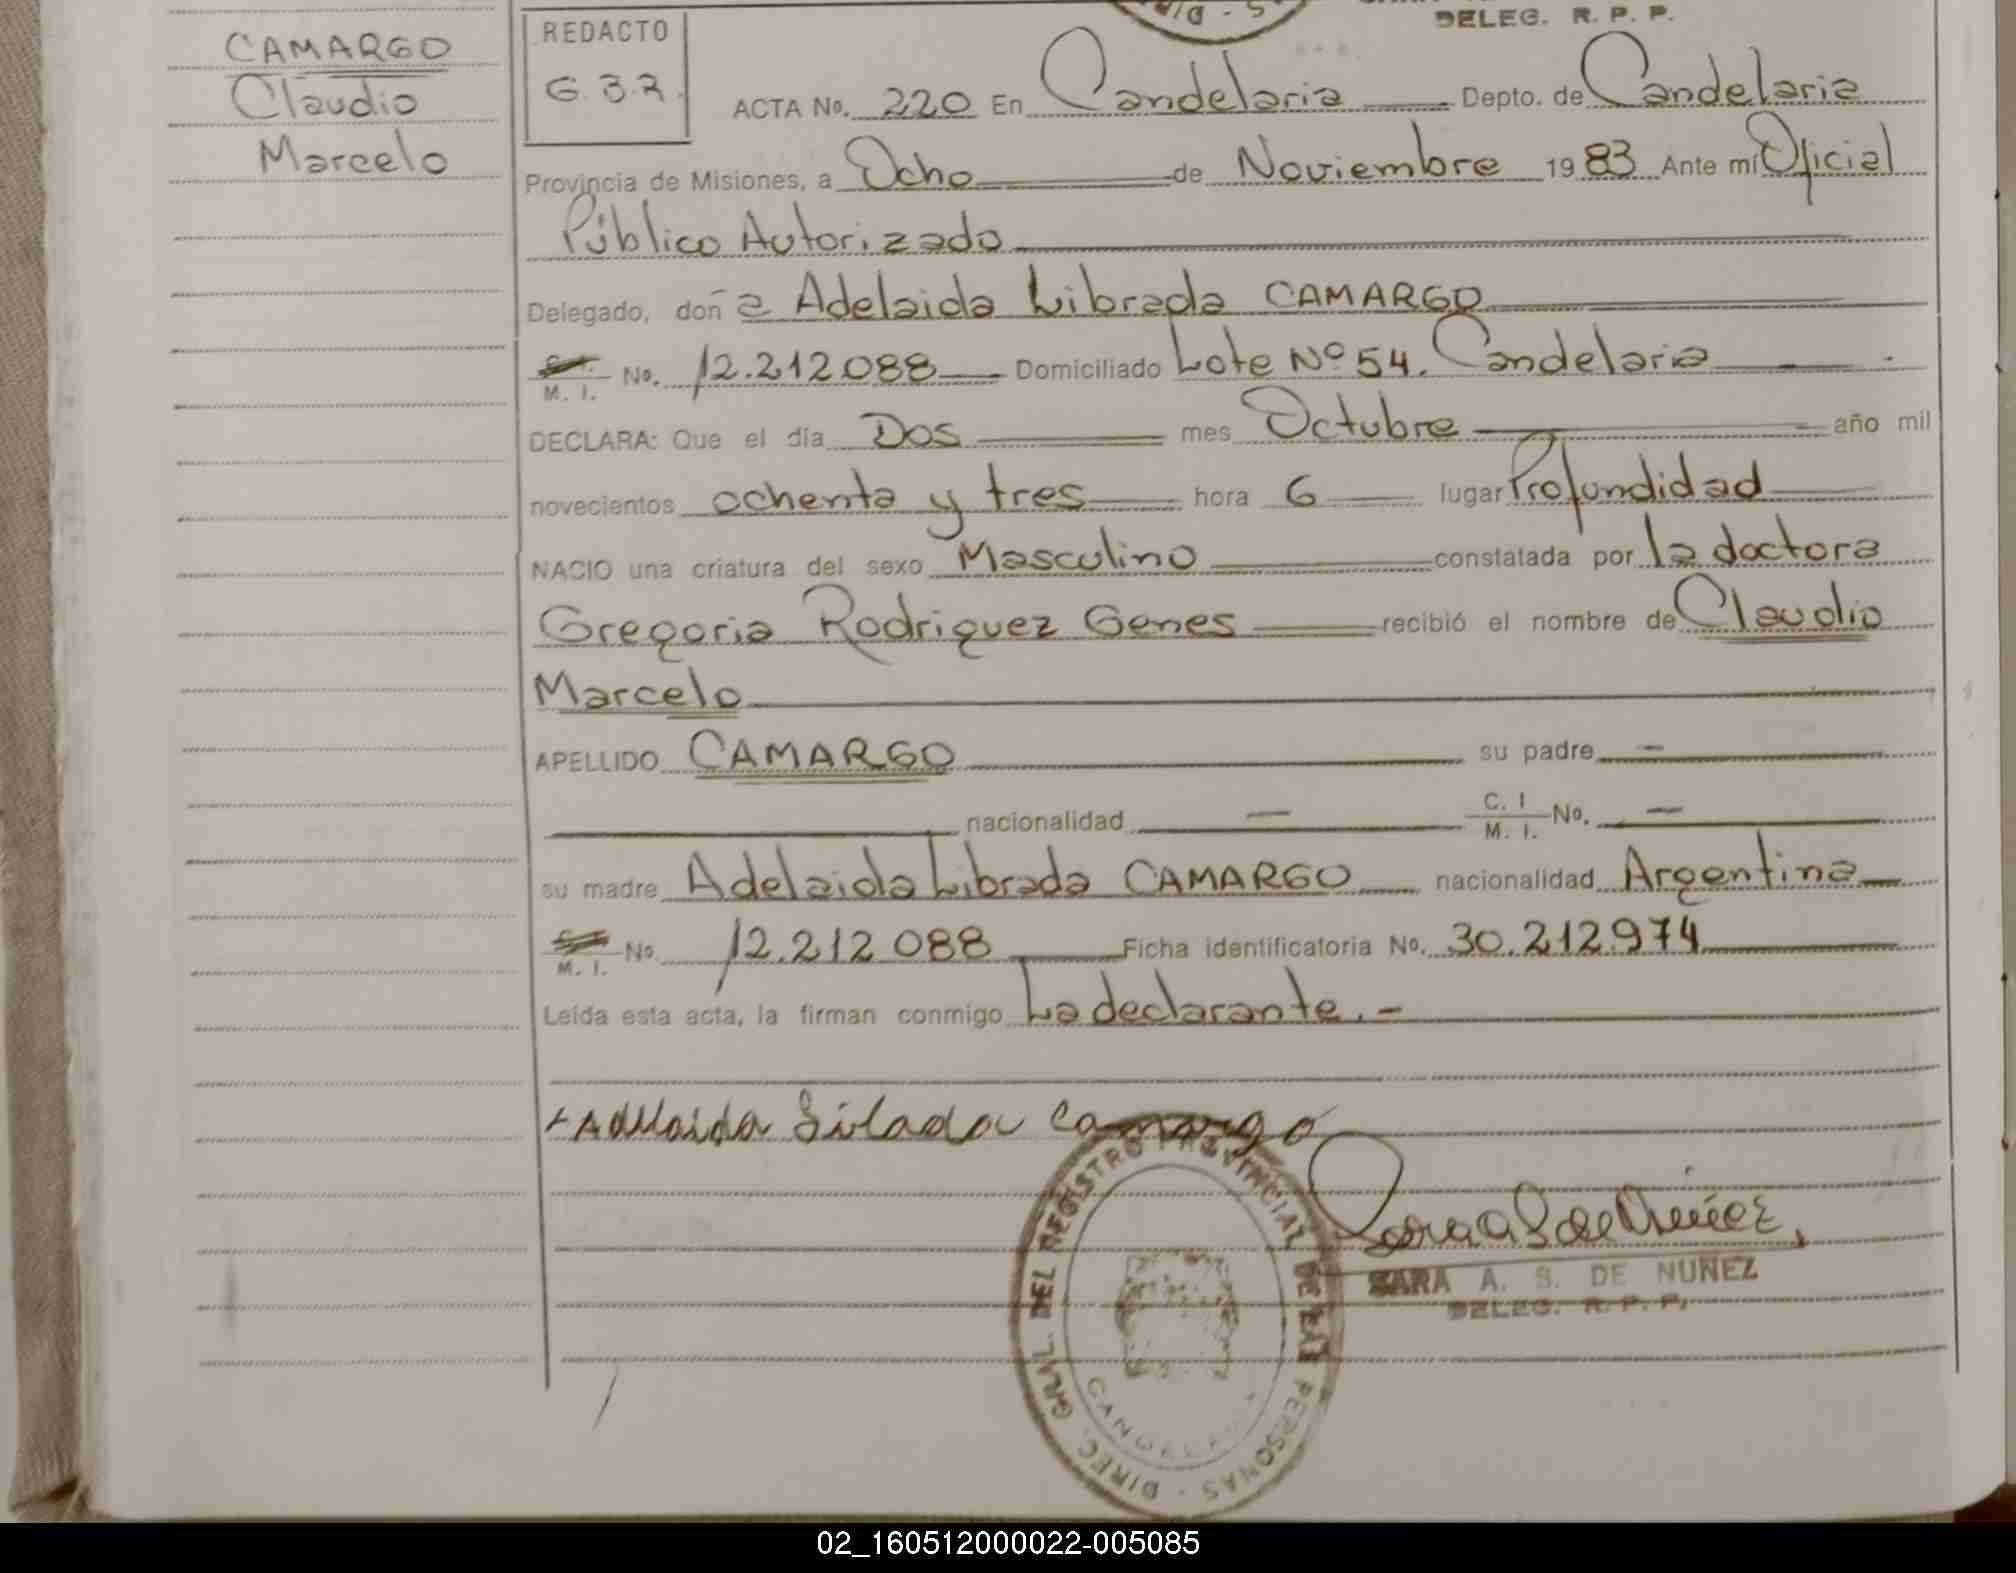 CAMARGO
Claudio
Marcelo
REDACTO
G.B.R.
DELEG. R. P. P.
ACTA No. 220 En Candelaria Depto. de Candelaria
Provincia de Misiones, a Ocho de Noviembre 1983 Ante mí Oficial
Público Autorizado
Delegado, doña Adelaida Librada CAMARGO
M. I. No. 12.212.088 Domiciliado Lote Nº 54. Candelaria
DECLARA: Que el día Dos mes Octubre año mil
novecientos ochenta y tres hora 6 lugar Profundidad
NACIO una criatura del sexo Masculino constatada por la doctora
Gregoria Rodriguez Genes recibió el nombre de Claudio
Marcelo
APELLIDO CAMARGO su padre —
nacionalidad — C. I M. I. No. —
su madre Adelaida Librada CAMARGO nacionalidad Argentina
M. I. No. 12.212.088 Ficha identificatoria No. 30.212.974
Leída esta acta, la firman conmigo La declarante. -
Adelaida Silada Camargo
SARA A. S. DE NUÑEZ
DELEG. R. P. P.
DIREC. GRAL. DEL REGISTRO PROVINCIAL DE LAS PERSONAS
02_160512000022-005085